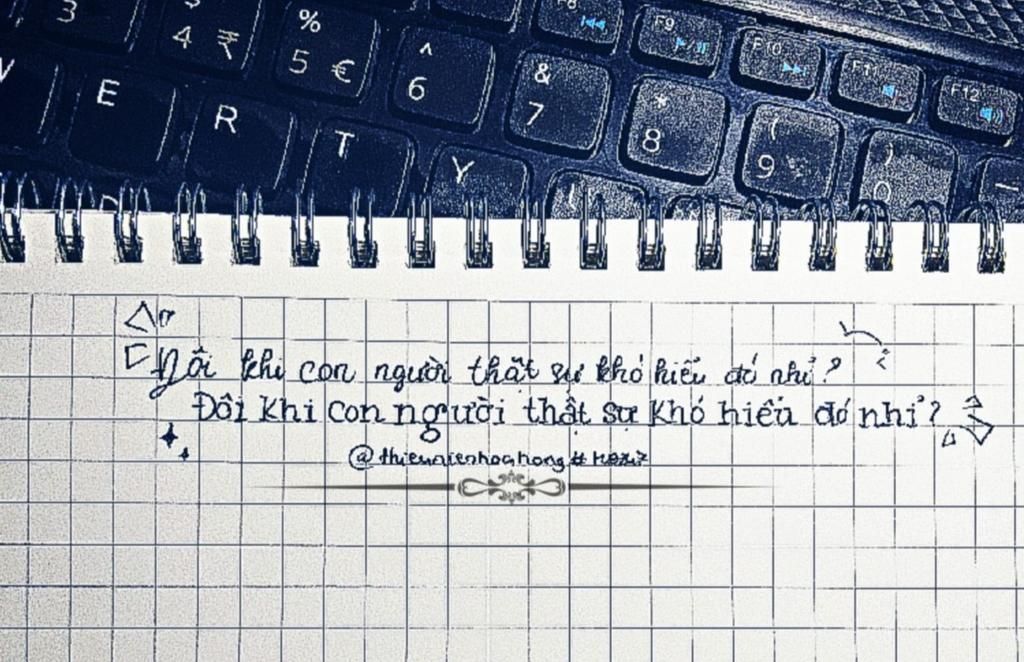 3
4 ₹
% 5 €
^ 6
& 7
* 8
( 9
) 0
F8
F9
F10
F11
F12
E
R
T
Y
Đôi khi con người thật sự khó hiểu đó nhỉ?
Đôi khi con người thật sự khó hiểu đó nhỉ?